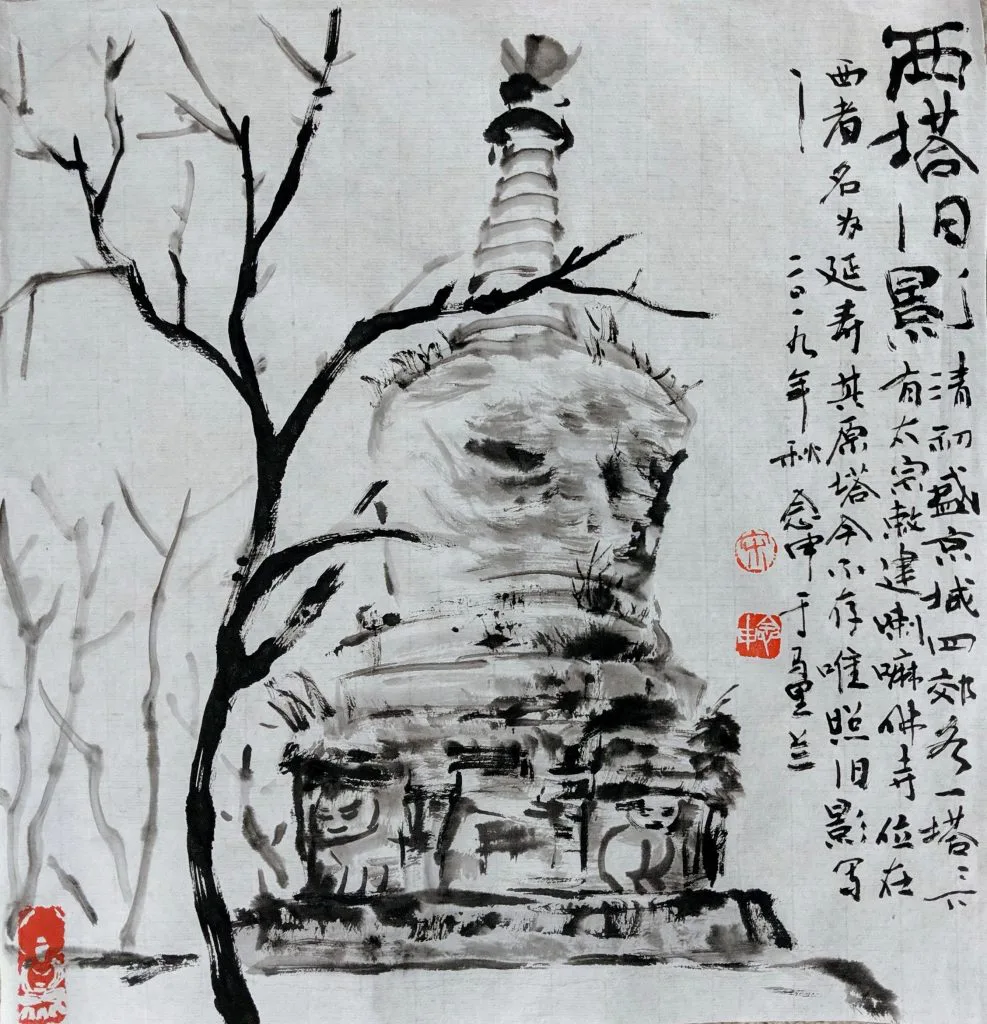 西塔旧影
清初盛京城四郊各一塔之下
有太宗敕建喇嘛佛寺位在
西者名为延寿其原塔今不存唯照旧影写
之 二〇一九年秋念申于马里兰
宋
念申